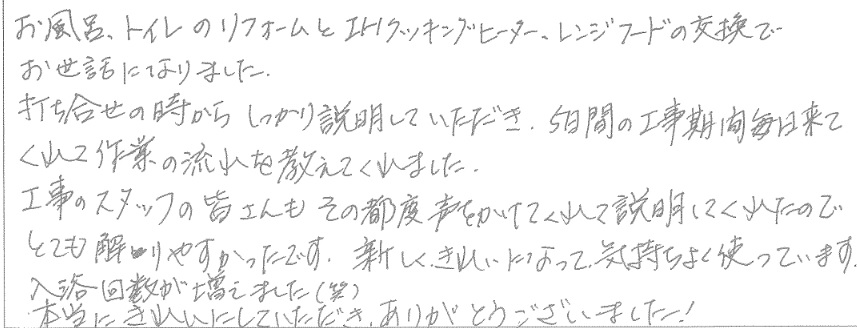 お風呂、トイレのリフォームとIHクッキングヒーター、レンジフードの交換で
お世話になりました。
打ち合せの時からしっかり説明していただき、5日間の工事期間毎日来て
くれて作業の流れを教えてくれました。
工事のスタッフの皆さんもその都度声をかけてくれて説明してくれたので
とても解りやすかったです。新しくきれいになって、気持ちよく使っています。
入浴回数が増えました(笑)
本当にきれいにしていただき、ありがとうございました!